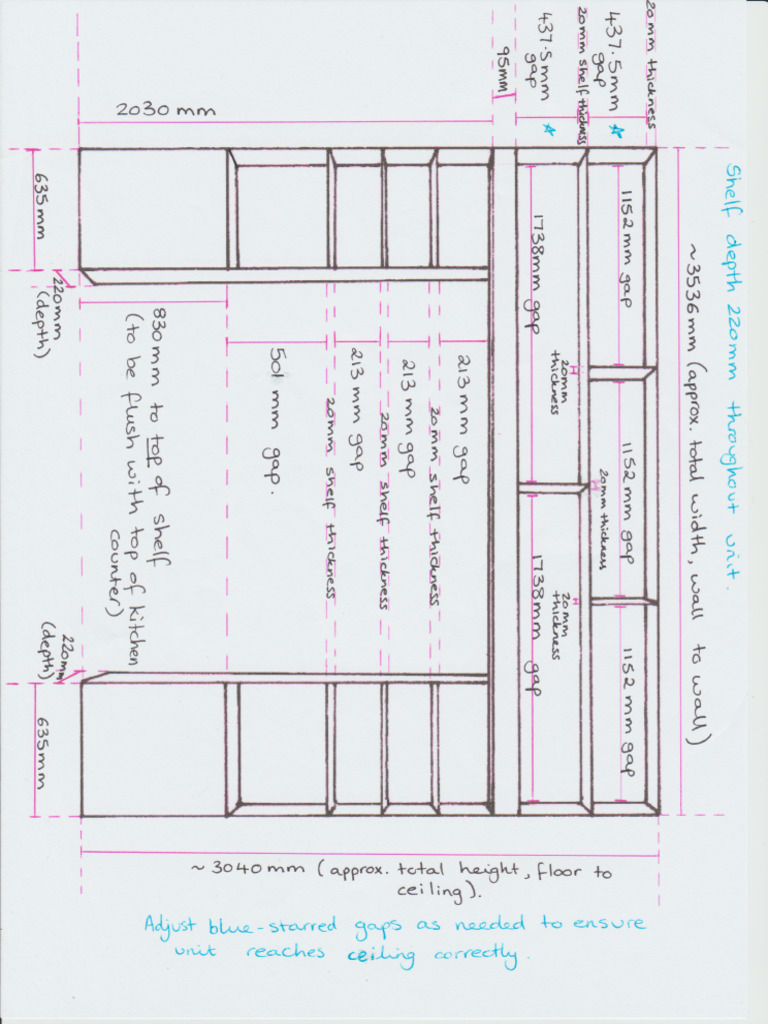 Shelf depth 220mm throughout unit.
~3536mm (approx. total width, wall to wall)
20mm thickness
437.5mm
gap
20mm shelf thickness
437.5mm
gap
95mm
2030 mm
1152mm gap
1152mm gap
1152mm gap
20mm thickness
1738mm gap
20mm
thickness
20mm
thickness
1738mm gap
213 mm gap
20mm shelf thickness
213 mm gap
20mm shelf thickness
213 mm gap
20mm shelf thickness
501 mm gap.
830mm to top of shelf
(to be flush with top of kitchen
counter)
220mm
(depth)
635mm
220mm
(depth)
635mm
~ 3040mm (approx. total height, floor to
ceiling).
Adjust blue-starred gaps as needed to ensure
unit reaches ceiling correctly.